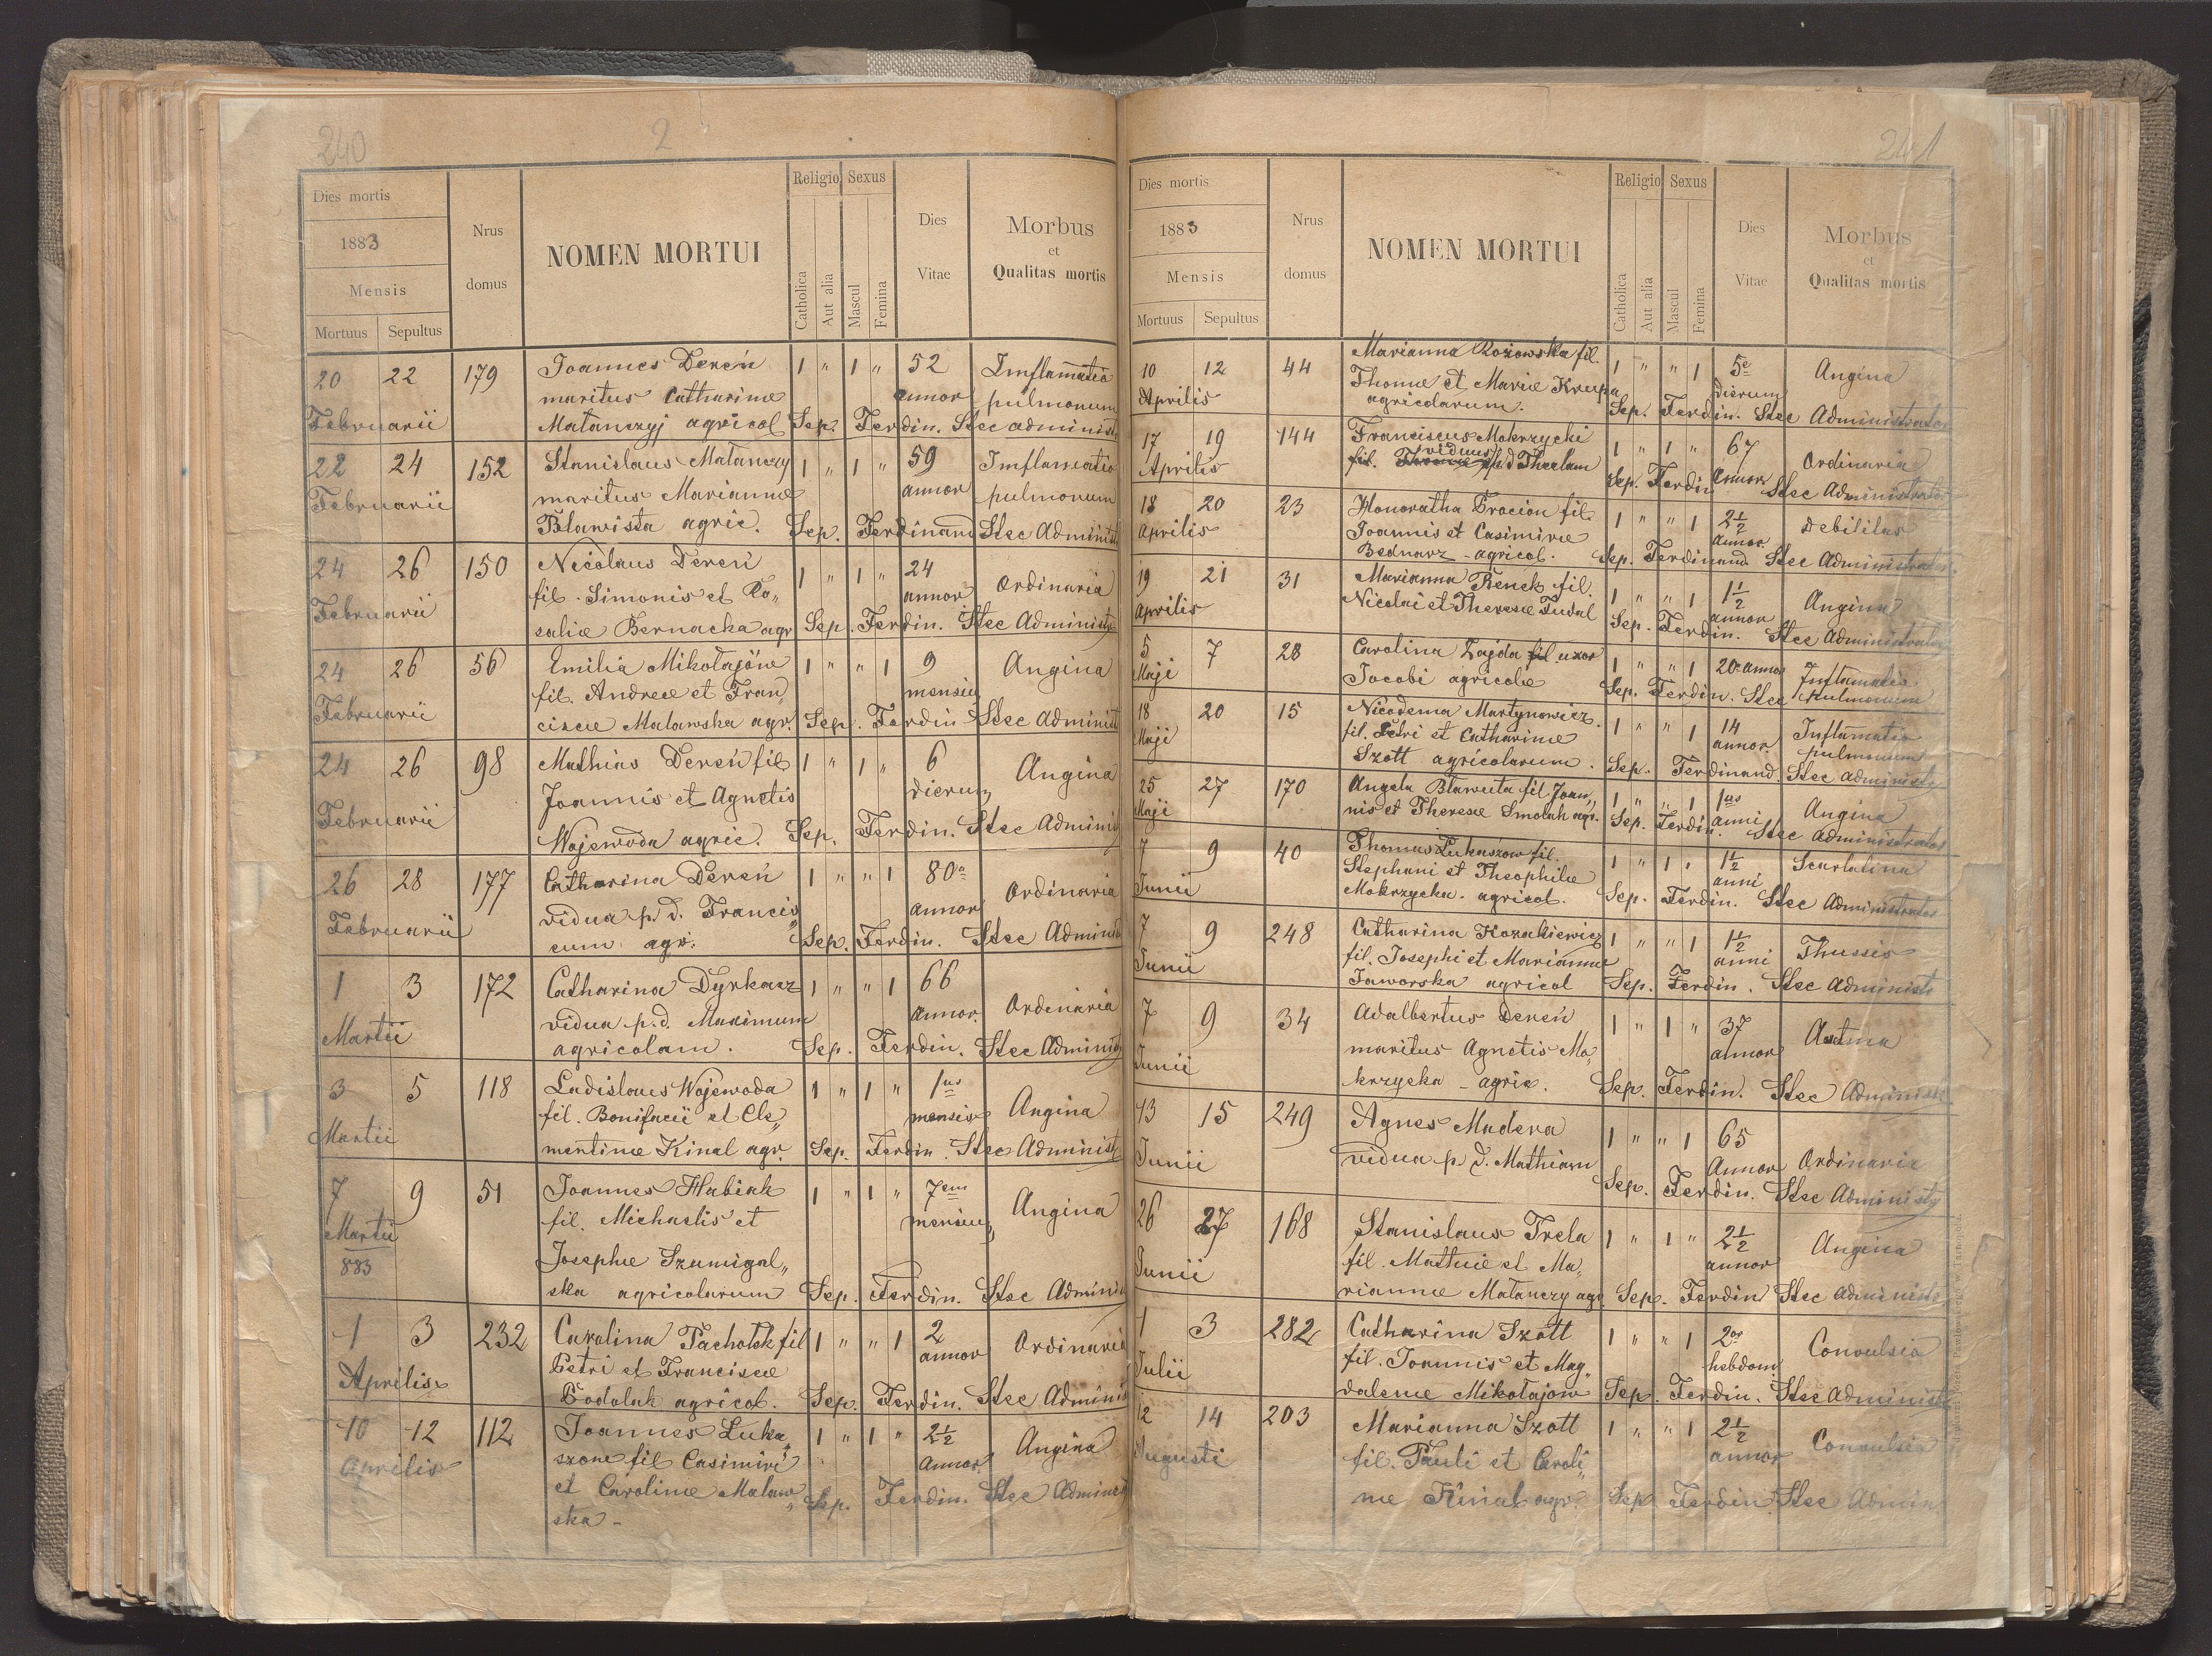 240
2
Dies mortis
1883
Mensis
Mortuus Sepultus
Nrus domus
NOMEN MORTUI
Religio
Catholica
Aut alia
Sexus
Mascul
Femina
Dies Vitae
Morbus
et
Qualitas mortis
20 22 179 Joannes Dereń 1 " 1 " 52 Inflamatio
Februarii maritus Catharinæ annor pulmonum
Matanczyj agricol Sep. Ferdin. Stec administ
22 24 152 Stanislaus Matanczy 1 " 1 " 59 Inflamatio
Februarii maritus Mariannæ annor pulmonum
Bławista agric. Sep. Ferdinand Stec Administ
24 26 150 Nicolaus Dereń 1 " 1 " 24 Ordinaria
Februarii fil. Simonis et Ro„ annor
saliæ Bernacka agr Sep. Ferdin. Stec Administ
24 26 56 Emilia Mikołajów 1 " " 1 9 Angina
Februarii fil. Andreæ et Fran„ mensiu
ciscæ Malawska agr. Sep. Ferdin Stec Administ
24 26 98 Mathias Dereń fil 1 " 1 " 6 Angina
Februarii Joannis et Agnetis dierum
Wojewoda agric. Sep. Ferdin. Stec Adminis
26 28 177 Catharina Dereń 1 " " 1 80 Ordinaria
Februarii vidua p. d. Francis„ annor
cum agr. Sep. Ferdin. Stec Adminis
1 3 172 Catharina Dyrkacz 1 " " 1 66 Ordinaria
Martii vidua p. d. Maximum annor.
agricolam. Sep. Ferdin. Stec Adminis
3 5 118 Ladislaus Wojewoda 1 " 1 " 1us Angina
Martii fil. Bonifacii et Cle„ mensis
mentinæ Kinal agr. Sep. Ferdin. Stec Administ
7 9 51 Joannes Hubiak 1 " 1 " 7em Angina
Martii fil. Michaelis et mensiu
883 Josephæ Szumigal„
ska agricolarum Sep. Ferdin. Stec Adminis
1 3 232 Carolina Pachołek fil 1 " " 1 2 Ordinaria
Aprilis Petri et Franciscæ annor
Podolak agricol. Sep. Ferdin. Stec Adminis
10 12 112 Joannes Luka„ 1 " 1 " 2½ Angina
Aprilis szow fil Casimiri annor.
et Carolinæ Malaw„ Sep. Ferdin. Stec Adminst
ska -
241
Dies mortis
1883
Mensis
Mortuus Sepultus
Nrus domus
NOMEN MORTUI
Religio
Catholica
Aut alia
Sexus
Mascul
Femina
Dies Vitae
Morbus
et
Qualitas mortis
10 12 44 Marianna Rożowska fil. 1 " " 1 5e Angina
Aprilis Thomæ et Mariæ Krupa dierum
agricolarum. Sep. Ferdin. Stec Administrator
17 19 144 Franciscus Mokrzycki 1 " 1 " 67 Ordinaria
Aprilis fil. viduus p d Theclam Sep. Ferdin annor Stec Administrator
18 20 23 Honoratha Procion fil. 1 " " 1 2½ Debilitas
Aprilis Joannis et Casimiræ annor.
Bednarz - agricol. Sep. Ferdinand. Stec Administrator
19 21 31 Marianna Benek fil. 1 " " 1 1½ Angina
Aprilis Nicolai et Theresæ Fudal annor
Sep. Ferdin. Stec Administrator
5 7 28 Carolina Zajda fil uxor 1 " " 1 20 annor Inflamatio
Maji Jacobi agricolæ Sep. Ferdin. Stec pulmonum
18 20 15 Nicodema Martynowicz 1 " " 1 14 Inflamatio
Maji fil. Petri et Catharinæ annor. pulmonum
Szott agricolarum. Sep. Ferdinand. Stec administ
25 27 170 Angela Bławuta fil. Joan„ 1 " " 1 1us Angina
Maji nis et Theresæ Smolak agr. Sep. Ferdin. anni Stec Administrator
7 9 40 Thomas Lukaszow fil. 1 " 1 " 1½ Scarlatina
Junii Stephani et Theophilæ anni
Mokrzycka. agricol. Sep. Ferdin. Stec Administrator
7 9 248 Catharina Kozakiewicz 1 " " 1 1½ Thussis
Junii fil. Josephi et Mariannæ anni
Jaworska agricol Sep. Ferdin. Stec Administ
7 9 34 Adalbertus Dereń 1 " 1 " 37 Astma
Junii maritus Agnetis Mo„ annor
krzycka - agric. Sep. Ferdin. Stec Administ
13 15 249 Agnes Madera 1 " " 1 65 Ordinaria
Junii vidua p. d. Mathiam Annor
Sep. Ferdin. Stec Administ
26 27 168 Stanislaus Trela 1 " 1 " 2½ Angina
Junii fil. Mathiæ et Ma„ annor
riannæ Matanczy agr. Sep. Ferdin Stec Administ
1 3 282 Catharina Szott 1 " " 1 2os Convulsia
Julii fil. Joannis et Mag„ hebdom
dalenæ Mikołajow Sep. Ferdin. Stec Administ
12 14 203 Marianna Szott 1 " " 1 2½ Convulsia
Augusti fil. Pauli et Caroli„ annor
næ Kinal agr. Sep Ferdin Stec Admin